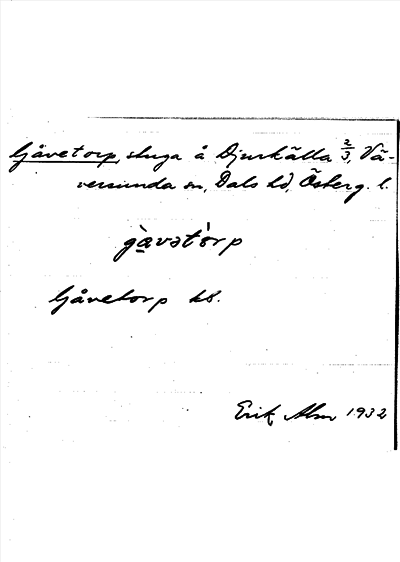 Gåvetorp, stuga å Djurkälla 2/3, Vä-
versunda sn, Dals hd, Österg. l.
gàvət'orp
Gåvetorp kb.
Erik Alm 1932